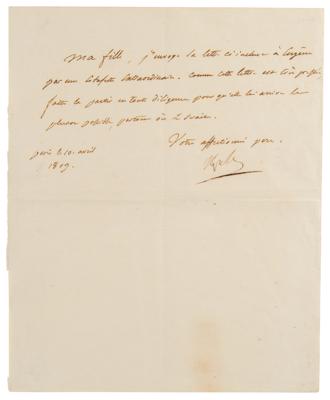 Ma fille, j'envoye la lettre ci incluse à Eugène
par une Estafette Extraordinaire. comme cette lettre est très pressée,
faites la partir en toute diligence pour qu'elle lui arrive le
plus possible, partout où il serait.
Votre affectionné père.
paris le 10. avril
1809.